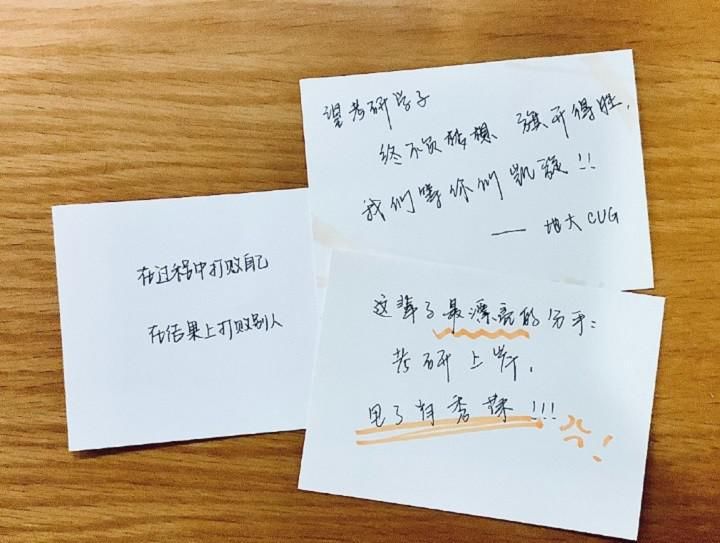 望考研学子
终不负梦想 旗开得胜,
我们等你们凯旋!!
—— 地大CUG
在过程中打败自己
在结果上打败别人
这辈子最漂亮的分手:
考研上岸,
甩了肖秀荣!!!